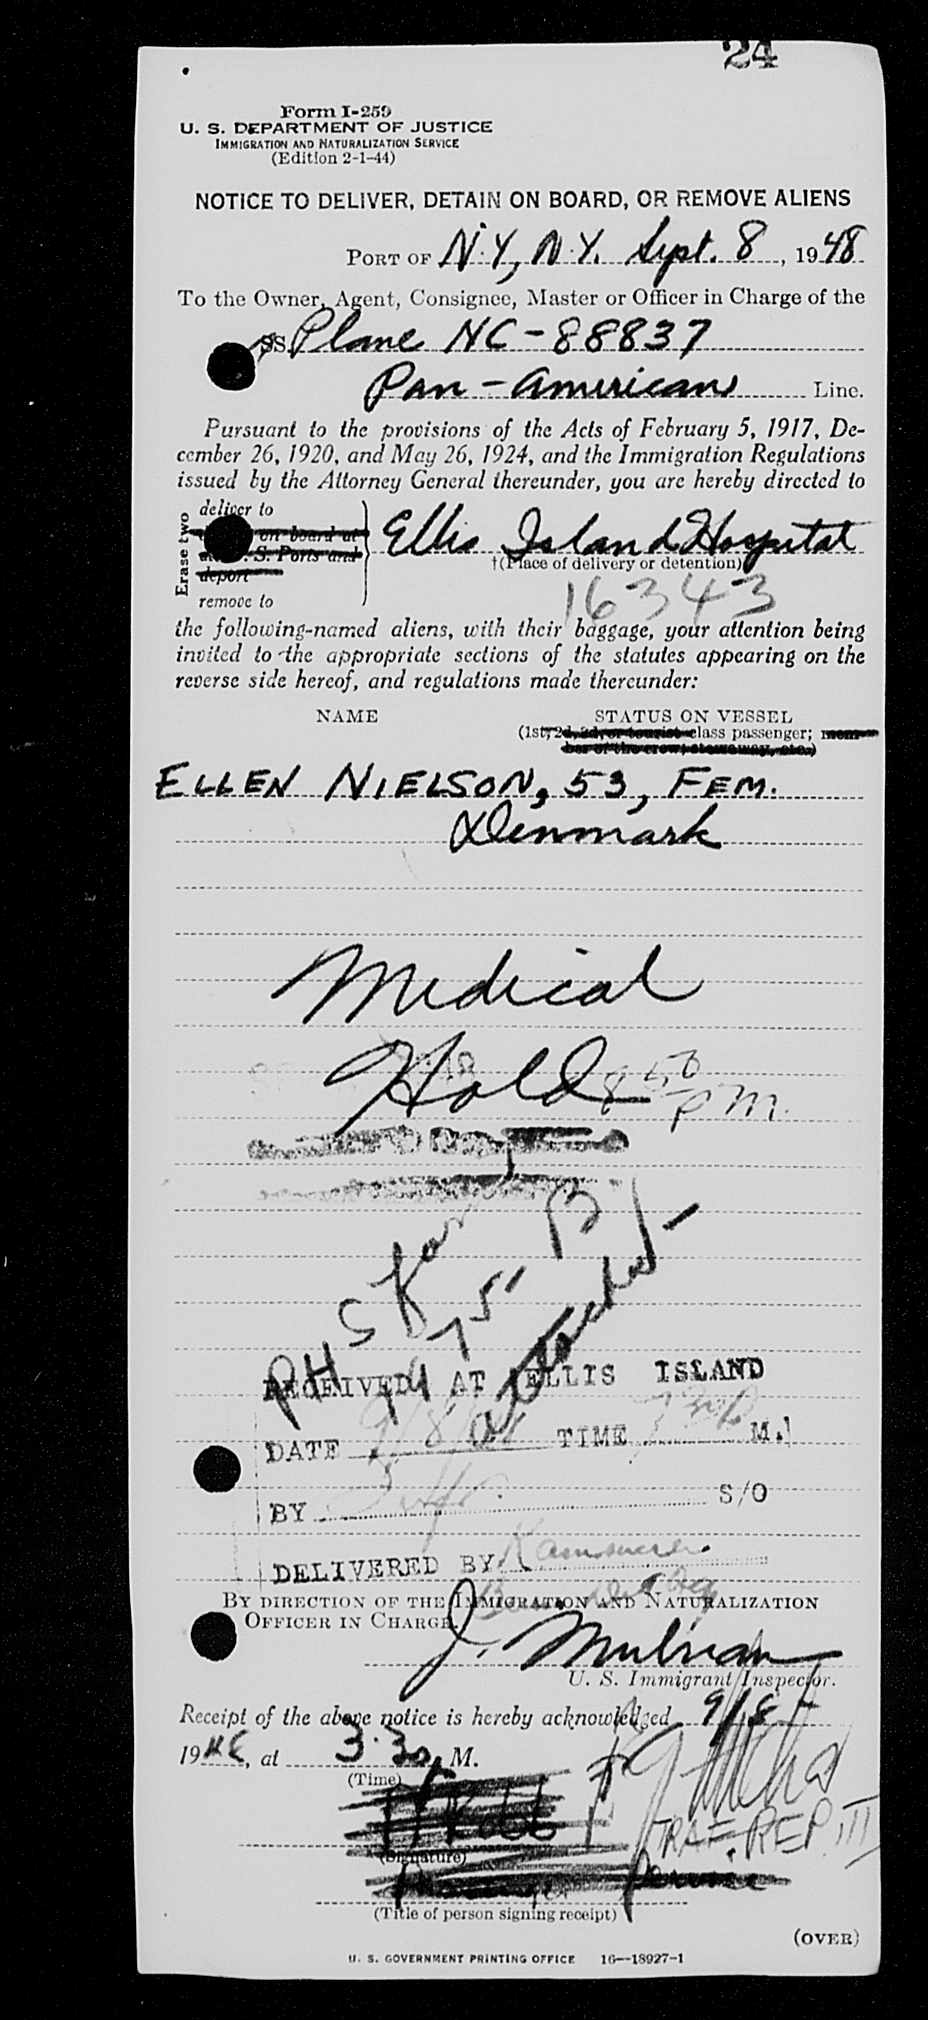 24
Form I-259
U. S. DEPARTMENT OF JUSTICE
IMMIGRATION AND NATURALIZATION SERVICE
(Edition 2-1-44)
NOTICE TO DELIVER, DETAIN ON BOARD, OR REMOVE ALIENS
PORT OF N.Y., N.Y. Sept. 8, 1948
To the Owner, Agent, Consignee, Master or Officer in Charge of the
SS Plane NC-88837
Pan-American Line.
Pursuant to the provisions of the Acts of February 5, 1917, De-
cember 26, 1920, and May 26, 1924, and the Immigration Regulations
issued by the Attorney General thereunder, you are hereby directed to
Erase two
deliver to
on board at
S. Ports and
deport
remove to
Ellis Island Hospital
†(Place of delivery or detention)
16343
the following-named aliens, with their baggage, your attention being
invited to the appropriate sections of the statutes appearing on the
reverse side hereof, and regulations made thereunder:
NAME STATUS ON VESSEL
(1st, 2d, 3d, or tourist class passenger; mem-
ber of the crew; stowaway, etc.)
ELLEN NIELSON, 53, FEM.
Denmark
Medical
Hold
8 50
PM.
PHS Form
1975-B
attached
RECEIVED AT ELLIS ISLAND
DATE 9/8 TIME 7 30 P M.
BY S/O
DELIVERED BY
BY DIRECTION OF THE IMMIGRATION AND NATURALIZATION
OFFICER IN CHARGE.
J.
U. S. Immigrant Inspector.
Receipt of the above notice is hereby acknowledged 9/8
1948, at 3:30 M.
(Time)
TRAF. REP. III
(Signature)
(Title of person signing receipt)
(OVER)
U. S. GOVERNMENT PRINTING OFFICE 16—18927-1